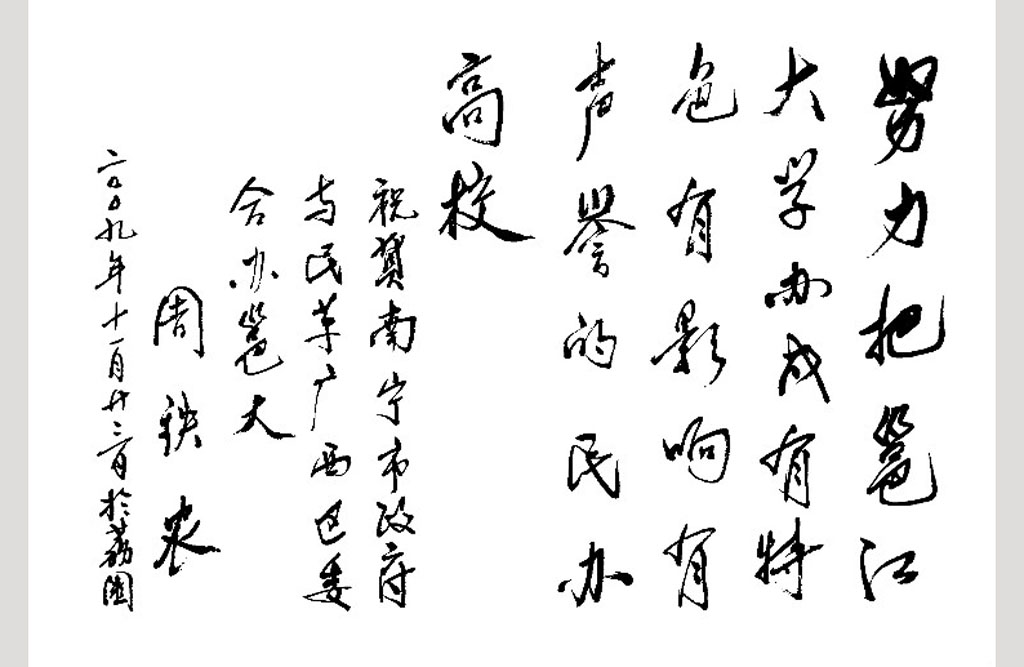 努力把邕江
大学办成有特
色有影响有
声誉的民办
高校
祝贺南宁市政府
与民革广西区委
合办邕大
周铁农
二〇〇九年十一月廿二日於荔园